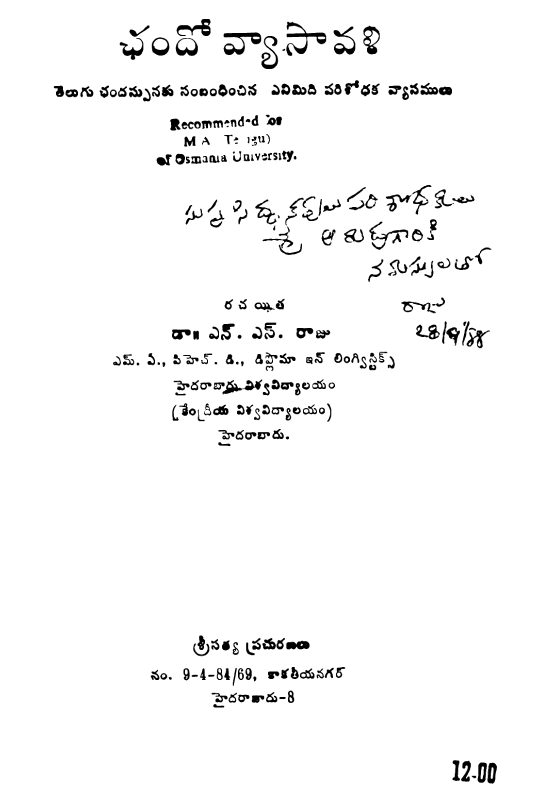 ఛందో వ్యాసావళి
తెలుగు ఛందస్సునకు సంబంధించిన ఎనిమిది పరిశోధక వ్యాసములు
Recommended for
M A Telugu)
of Osmania University.
సుప్రసిద్ధ కవులు పరిశోధకులు
శ్రీ ఆరుద్రగారికి
నమస్సులతో
రాజు
28/9/88
రచయిత
డా॥ ఎన్. ఎస్. రాజు
ఎమ్. ఏ., పిహెచ్. డి., డిప్లొమా ఇన్ లింగ్విస్టిక్స్
హైదరాబాదు విశ్వవిద్యాలయం
(కేంద్రీయ విశ్వవిద్యాలయం)
హైదరాబాదు.
శ్రీసత్య ప్రచురణలు
నం. 9-4-84/69, కాకతీయనగర్
హైదరాబాదు-8
12-00